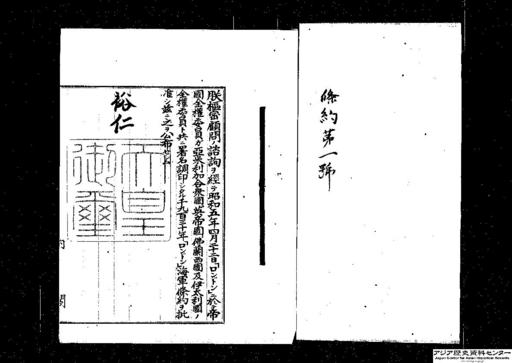 條約第一號
朕樞密顧問ノ諮詢ヲ經テ昭和五年四月二十二日「ロンドン」ニ於テ帝
國全權委員カ亞米利加合衆國英帝國佛蘭西國及伊太利國ノ
全權委員ト共ニ署名調印シタル千九百三十年「ロンドン」海軍條約ヲ批
准シ茲ニ之ヲ公布セシム
裕仁
天皇
御璽
内閣
アジア歴史資料センター
Japan Center for Asian Historical Records